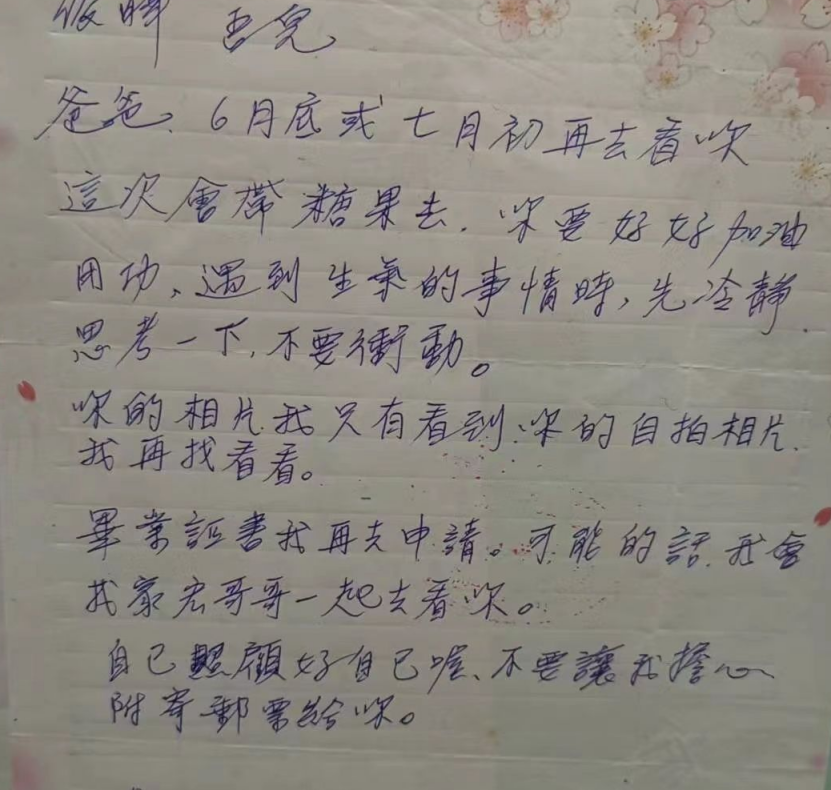 吾兒
爸爸、6月底或七月初再去看你
這次會帶糖果去.你要好好加油
用功、遇到生氣的事情時,先冷靜
思考一下,不要衝動。
你的相片我只有看到你的自拍相片.
我再找看看。
畢業証書我再去申請。可能的話.我會
找家宏哥哥一起去看你。
自己照顧好自己喔、不要讓我擔心
附寄郵票給你。